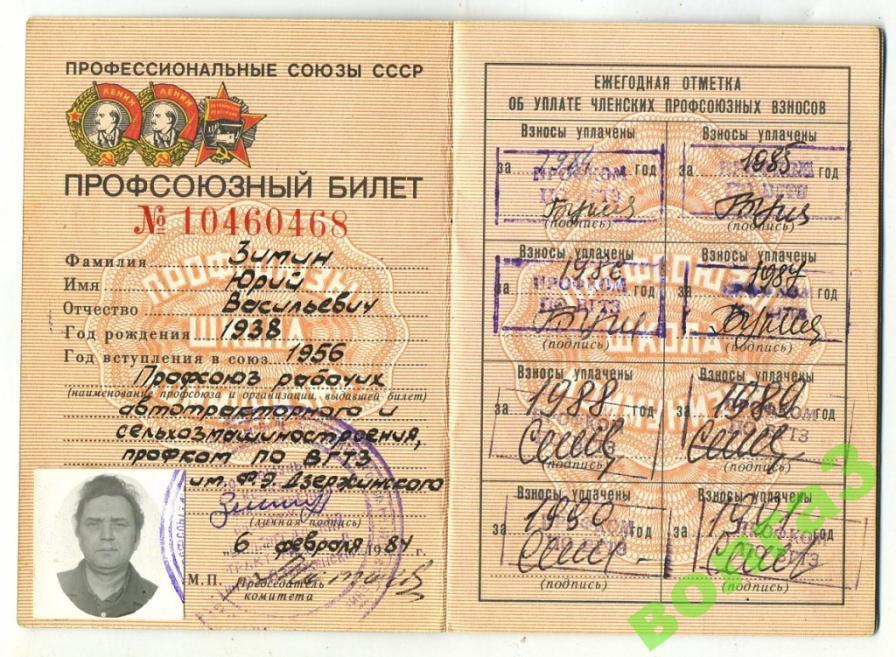 ПРОФЕССИОНАЛЬНЫЕ СОЮЗЫ СССР
ЛЕНИН ЛЕНИН
ПРОФСОЮЗНЫЙ БИЛЕТ
№ 10460468
Фамилия Зимин
Имя Юрий
Отчество Васильевич
Год рождения 1938
Год вступления в союз 1956
Профсоюз рабочих
(наименование профсоюза и организации, выдавшей билет)
автотракторного и
сельхозмашиностроения,
профком по ВГТЗ
им. Ф.Э. Дзержинского
(личная подпись)
„6 февраля 1984 г.
М.П. Председатель
комитета
ЕЖЕГОДНАЯ ОТМЕТКА
ОБ УПЛАТЕ ЧЛЕНСКИХ ПРОФСОЮЗНЫХ ВЗНОСОВ
Взносы уплачены Взносы уплачены
за 1984 год за 1985 год
ПРОФКОМ
(подпись) (подпись)
Взносы уплачены Взносы уплачены
1986 1987
ПРОФКОМ
(подпись) (подпись)
Взносы уплачены Взносы уплачены
за 1988 год за 1989 год
(подпись) (подпись)
Взносы уплачены Взносы уплачены
за 1990 год за 1991 год
(подпись) (подпись)
ПРОФСОЮЗЫ
ШКОЛА
КОММУНИЗМА